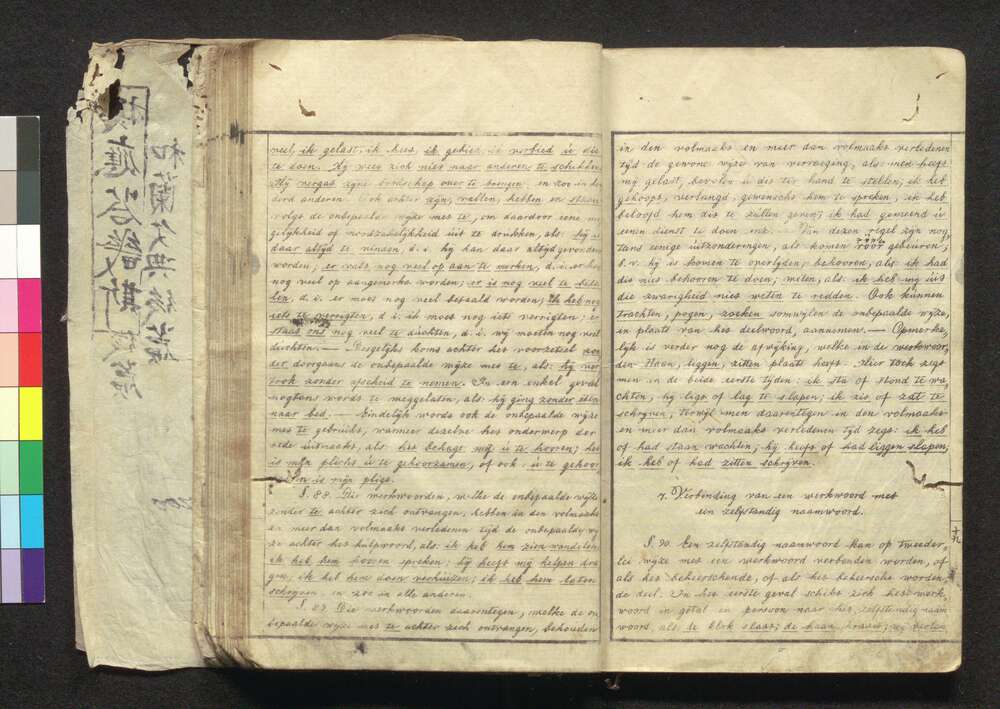 veel, ik gelast, ik kies, ik gebied, ik verbied u dit
te doen. Hy wies zich niet naar anderen te schikken
Hy vergat zyne boodschap over te brengen, en zoo in de
derd anderen. Ook achter zyn, vallen, hebben en staan
volgt de onbepaalde wyze met te, om daardoor eene mo
gelykheid of noodzakelykheid uit te drukken, als: hy is
daar altyd te vinden, d. i. hy kan daar altyd gevonden
worden; er valt nog veel op aan te merken, d. i. er kan
nog veel op aangemerkt worden; er is nog veel te beta
len, d. i. er moet nog veel betaald worden; Ik heb nog
iets te verrigten, d. i. ik moet nog iets verrigten; er
staat ons nog veel te duchten, d. i. wy moeten nog veel
duchten. — Desgelyks komt achter het voorzetsel zon
der doorgaans de onbepaalde wyze met te, als: hy ver
trok zonder afscheid te nemen. In een enkel geval
nogtans wordt te weggelaten, als: hy ging zonder eten
naar bed. — Eindelyk wordt ook de onbepaalde wyze
met te gebruikt, wanneer dezelve het onderwerp der
rede uitmaakt, als: het behaagt my u te hooren; het
is myn plicht u te gehoorzamen, of ook: u te gehoor
is myn pligt.
§. 88. Die werkwoorden, welke de onbepaalde wyze
zonder te achter zich ontvangen, hebben in den volmaakt
en meer dan volmaakt verledenen tyd de onbepaalde wy
ze achter het hulpwoord, als: ik heb hem zien wandelen
ik heb hem hooren spreken; hy heeft my helpen dra
gen; ik heb hem doen verhuizen; ik heb hem laten
schryven, en zoo in alle anderen.
§. 89. Die werkwoorden daarentegen, welke de on
bepaalde wyze met te achter zich ontvangen, behouden
in den volmaakt en meer dan volmaakt verledenen
tyd de gewone wyze van vervoeging, als: men heeft
my gelast, bevolen u dit ter hand te stellen; ik heb
gehoopt, verlangd, gewenscht hem te spreken, ik heb
beloofd hem dit te zullen geven; ik had gemeend u
eenen dienst te doen enz. — Van dezen regel zyn nog
tans eenige uitzonderingen, als komen voor gebeuren,
b. v. hy is komen te overlyden; behooren, als ik had
dit niet behooren te doen; weten, als: ik heb my uit
die zwarigheid niet weten te redden. Ook kunnen
trachten, pogen, zoeken somwylen de onbepaalde wyze,
in plaats van het deelwoord, aannemen. — Opmerke
lyk is verder nog de afwyking, welke in de werkwoor
den staan, liggen, zitten plaats heeft. Hier toch zegt
men in de beide eerste tyden: ik sta of stond te wa
chten, hy ligt of lag te slapen; ik zit of zat te
schryven; terwyl men daarentegen in den volmaakt
en meer dan volmaakt verledenen tyd zegt: ik heb
of had staan wachten; hy heeft of had liggen slapen;
ik heb of had zitten schryven.
7. Verbinding van een werkwoord met
een zelfstandig naamwoord.
§. 90. Een zelfstandig naamwoord kan op tweeder
lei wyze met een werkwoord verbonden worden, of
als het beheerschende, of als het beheerscht worden
de deel. In het eerste geval schikt zich het werk
woord in getal en persoon naar het zelfstandig naam
woord, als: de klok slaat; de haan kraait; wy
和蘭文典